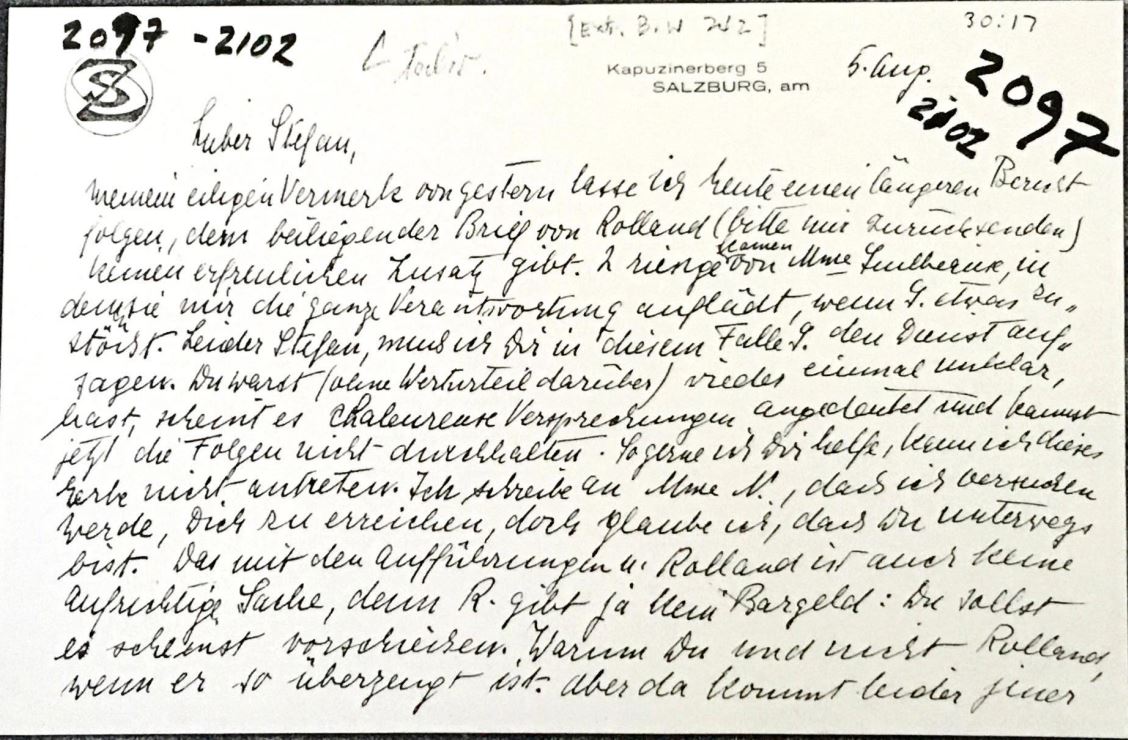 2097 - 2102
[Ext. B.W 7d2]
30:17
SZ
Kapuzinerberg 5
SALZBURG, am
5. Aug.
2097
2102
Lieber Stefan,
meinem eiligen Vermerk von gestern lasse ich heute einen längeren Bericht
folgen, dem beiliegender Brief von Rolland (bitte mir zurücksenden)
keinen erfreulichen Zusatz gibt. 2 riesige von Mme in
dem sie mir die ganze Verantwortung auflädt, wenn J. etwas zu„
stösst. Leider Stefan, muss ich Dir in diesem Falle J. den Dienst auf„
sagen. Du warst (ohne Werturteil darüber) wieder einmal unklar,
hast, scheint es chaleureuse Versprechungen angedeutet und kannst
jetzt die Folgen nicht durchhalten. So gerne ich Dir helfe, kann ich dieses
Erbe nicht antreten. Ich schreibe an Mme N., dass ich versuchen
werde, Dich zu erreichen, doch glaube ich, dass Du unterwegs
bist. Das mit den Aufführungen u. Rolland ist auch keine
aufrichtige Sache, denn R. gibt ja kein Bargeld: Du sollst
es scheinst vorschiessen. Warum Du und nicht Rolland,
wenn er so überzeugt ist. Aber da kommt leider jener